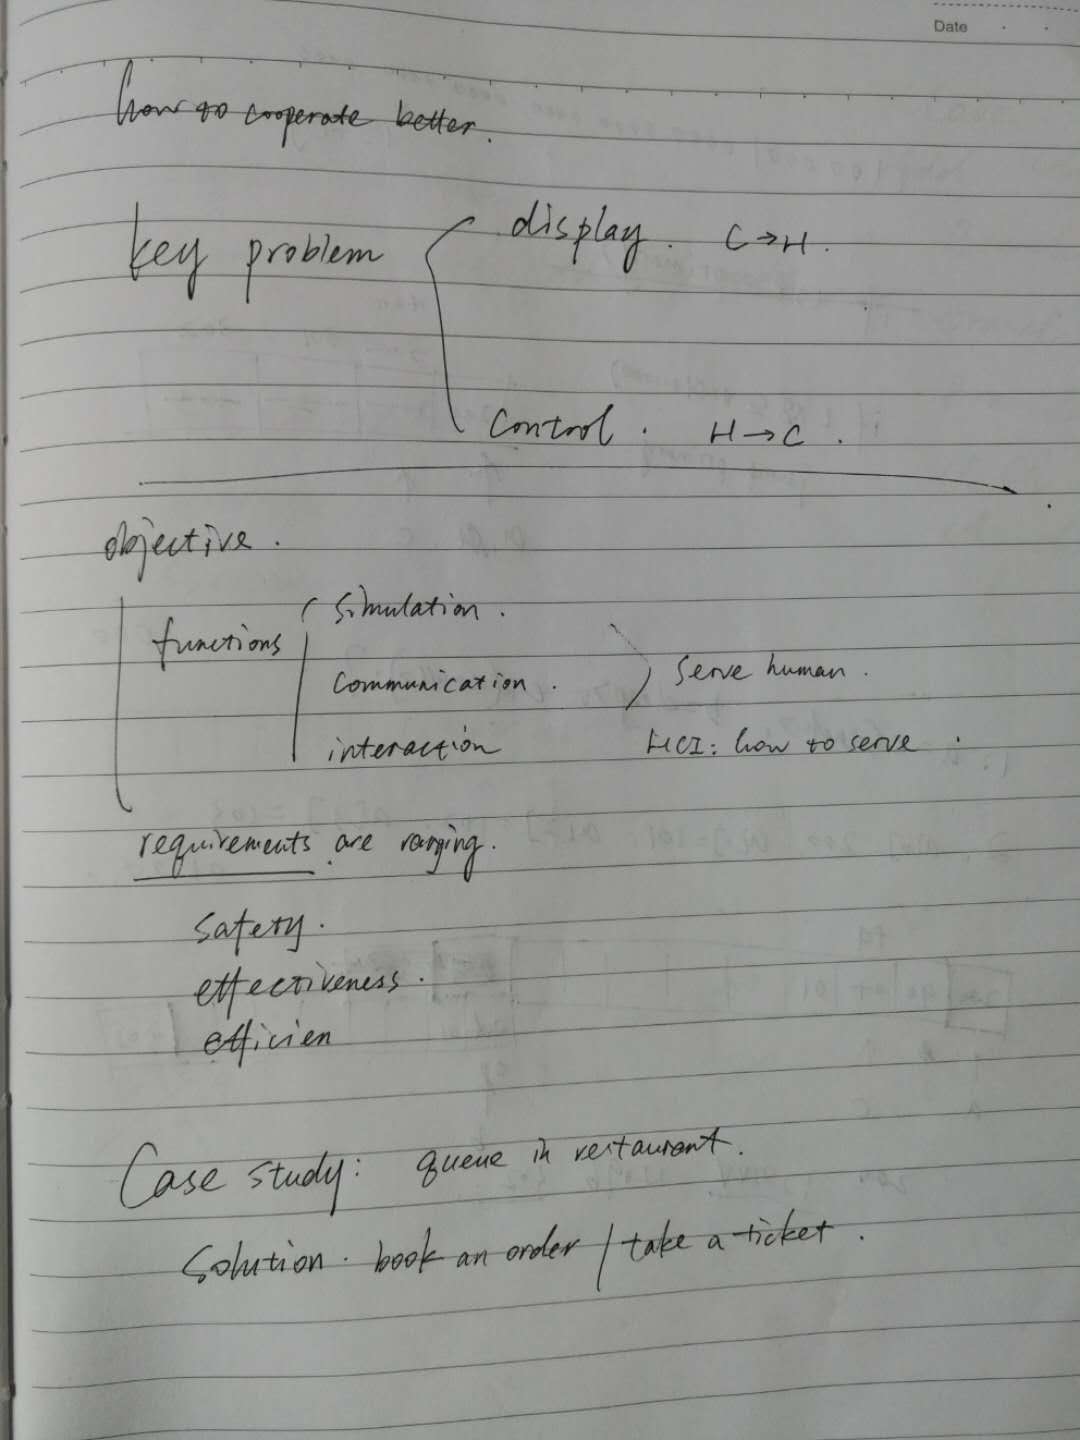 Date
how to cooperate better.
key problem
display. C→H.
Control. H→C.
objective.
functions
simulation.
communication.
serve human.
interaction
HCI: how to serve.
requirements are ranging.
safety.
effectiveness.
efficien
Case study: queue in restaurant.
Solution. book an order / take a ticket.